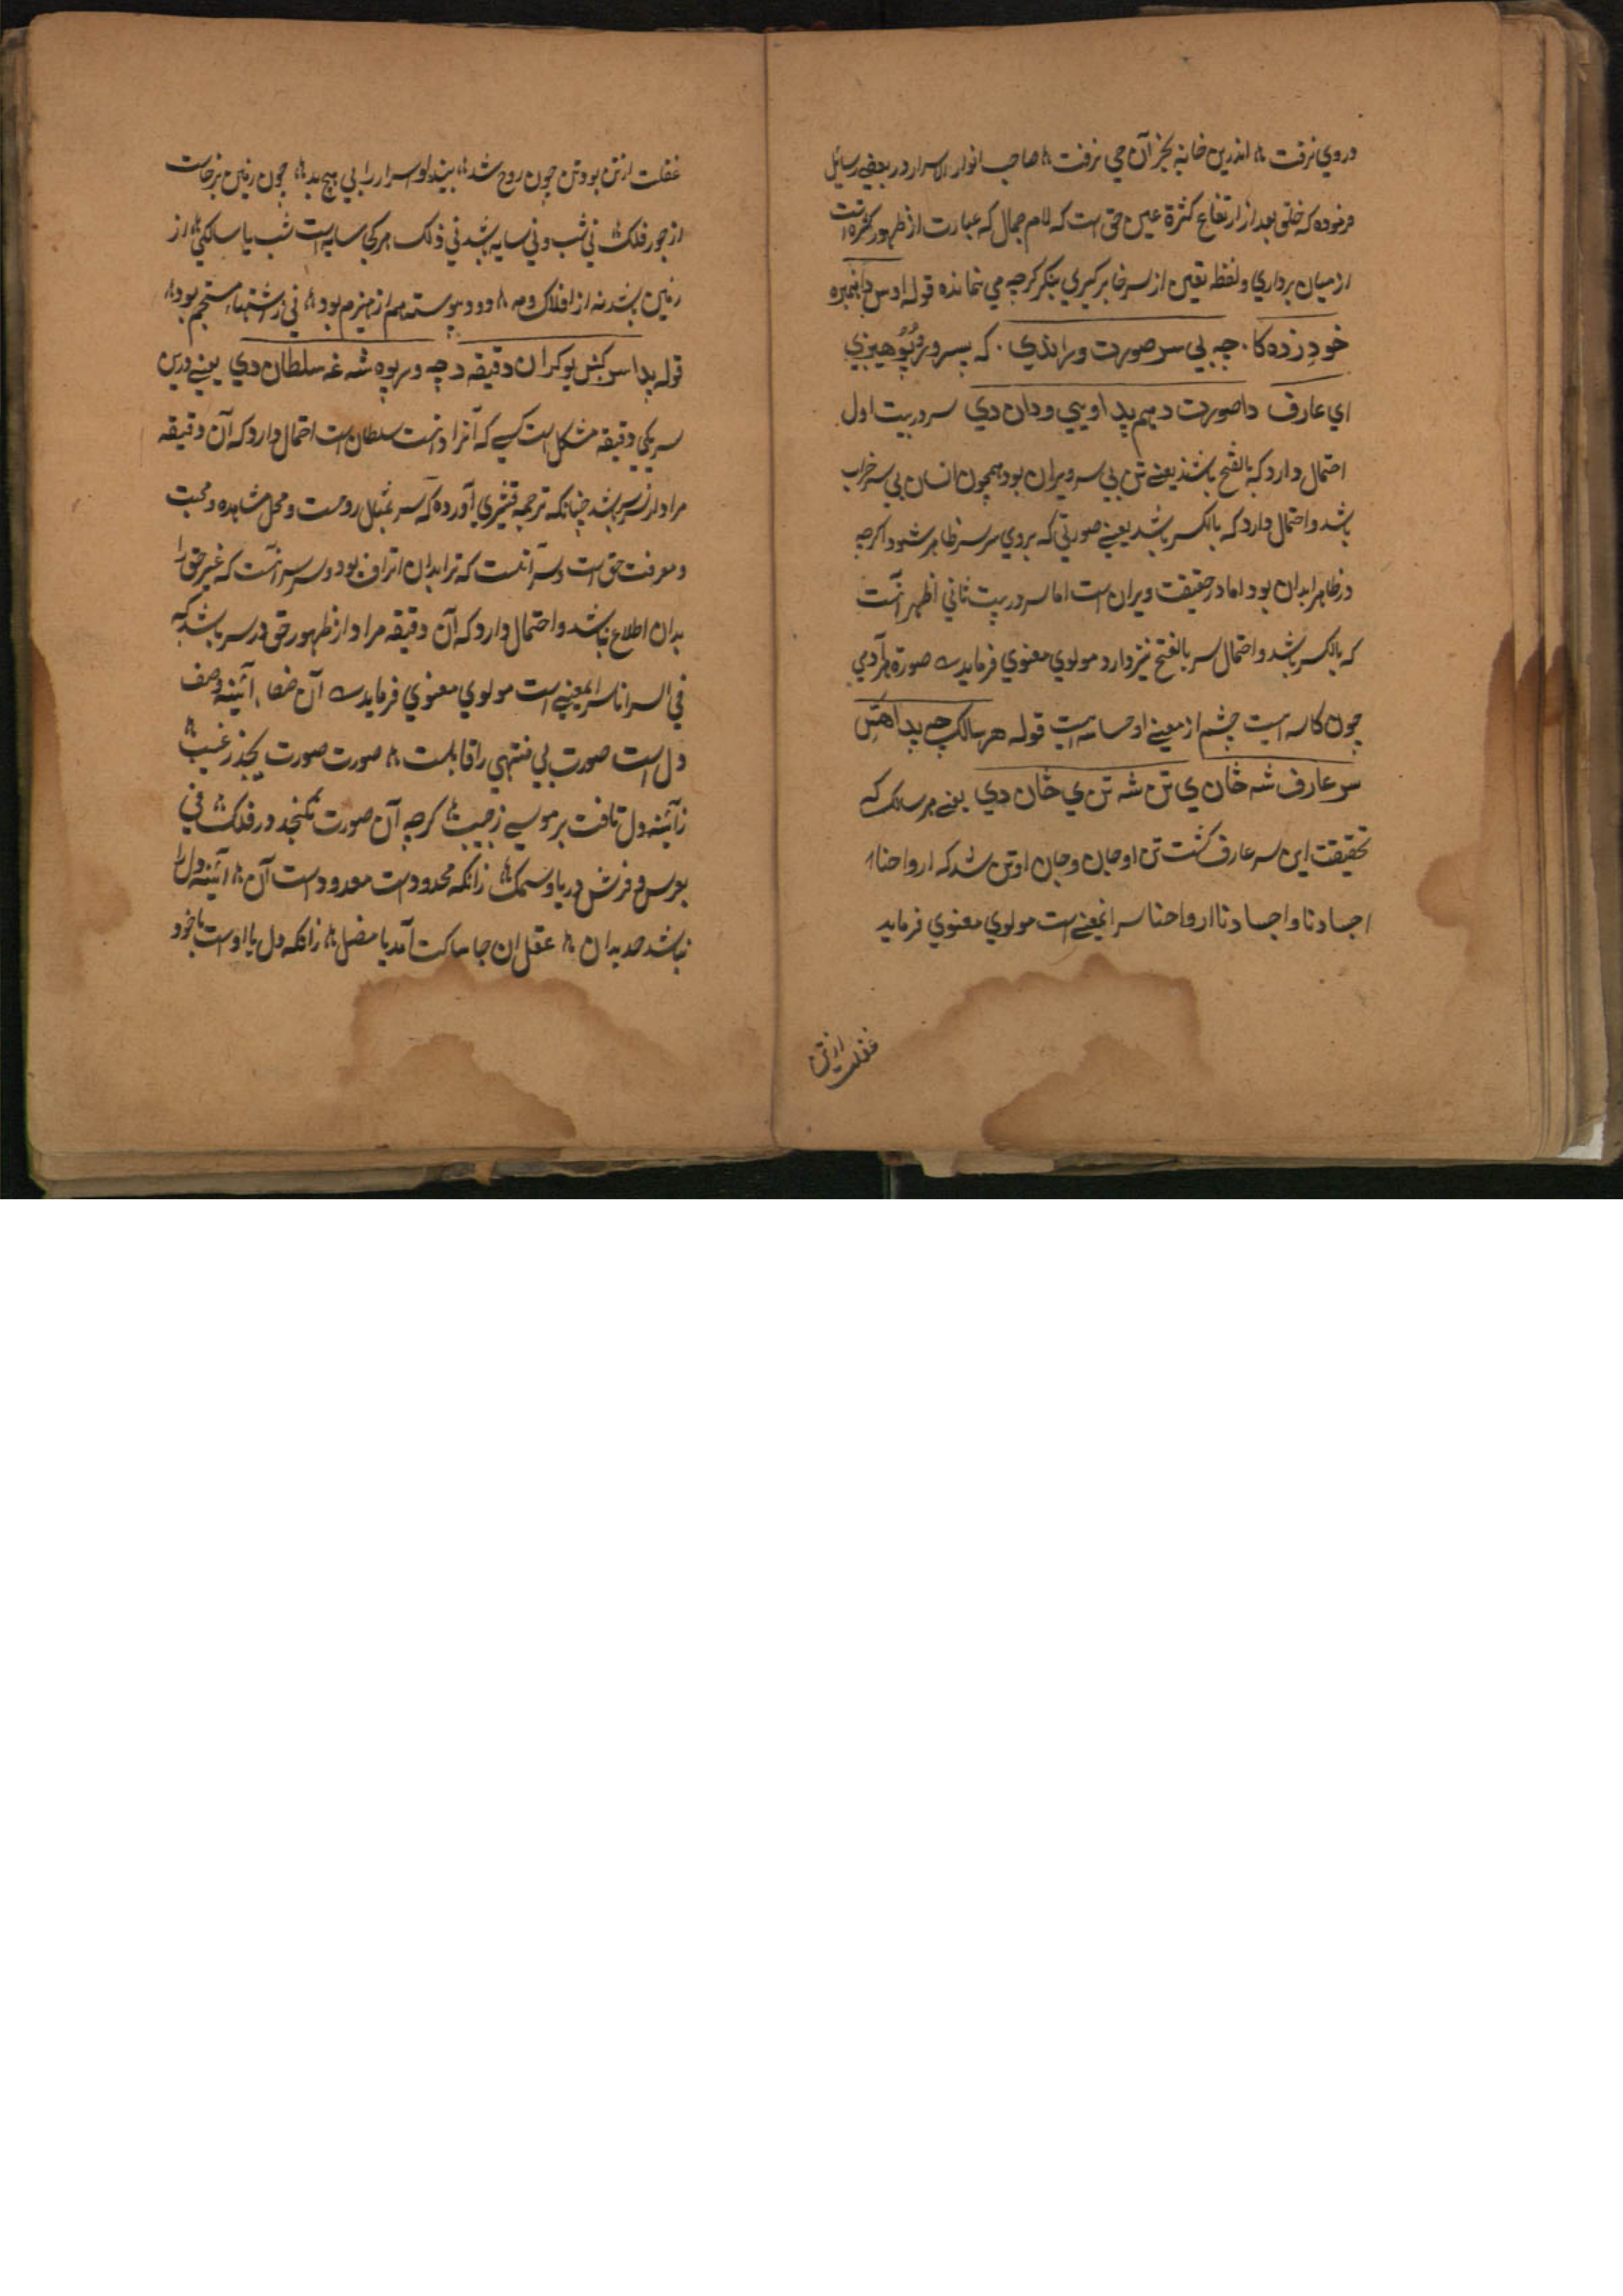 در وي نرفت اندرين خانه بجز آن حي نرفت صاحب انوار الاسرار در بعضي رسايل
فرموده كه خلق بعد از ارتفاع كثرة عين حق است كه لام جمال كه عبارت از ظهور كثرة است
از ميان برداري و لفظ تعين از سر خا بركيري بنكر كرچه مي نمانده قوله اوس
خود زده كا چه بي سر صورت ويرانذي كه بسر
اي عارف دا صورت دهم پدا ويي ودان دي سر در بيت اول
احتمال دارد كه بالفتح باشد يعني تن بي سر ويران بود همچون انسان بي سر خراب
باشد و احتمال دارد كه بالكسر باشد يعني صورتي كه بروي سر سر ظاهر شود اكرچه
در ظاهر ابدان بود اما در حقيقت ويران است اما سر در بيت ثاني اظهر آنست
كه بالكسر باشد و احتمال سر بالفتح نيز دارد مولوي معنوي فرمايد صورة هر آدمي
چون كاسه ايست چشم از معني او حساسه ايست قوله هر سالك چه پدا هتس
سر عارف شه ځان ي تن شه تن ي ځان دي يعني هر سالك كه
تحقيقت اين سر عارف كشت تن او جان و جان او تن شد كه ارواحنا
اجسادنا و اجسادنا ارواحنا سر اينمعني است مولوي معنوي فرمايد
غفلت از تن
غفلت از تن بود تن چون روح شد بيند او اسرار را بي هيچ بد چون زمين برخاست
از جور فلك ني شب و ني سايه باشد ني دلك هر كجا سايه است شب يا سايكي از
زمين باشد نه از افلاك و مه دود پيوسته هم از هيزم بود ني ز آتشها مستنجم بود
قوله پدا سر كښ يو كران دقيقه د چه ور پوه شه غه سلطان دي يعني درين
سر يكي دقيقه مشكل است كسي كه آنرا دانست سلطان است احتمال دارد كه آن دقيقه
مراد از سر سر باشد چنانكه ترجمه قشيري آورده كه سر بمثل روحست و محل مشاهده و محبت
و معرفت حق است و سر آنست كه ترا بدان اشراف بود و سر سر آنست كه غير حق را
بدان اطلاع نباشد و احتمال دارد كه آن دقيقه مراد از ظهور حق در سر باشد كه
في السر انا سر اينمعني است مولوي معنوي فرمايد آن صفا آئينه وصف
دل است صورت بي منتهي را قابلست صورت صورت بيحد ز غيب
ز آئينه دل تافت بر موسي ز جيب كرچه آن صورت نكنجد در فلك ني
بعرش و فرش و دريا و سمك زانكه محدودست معدودست آن آئينه دل را
نباشد حد بدان عقل اين جا ساكت آمد يا مضل زانكه دل با اوست يا خود